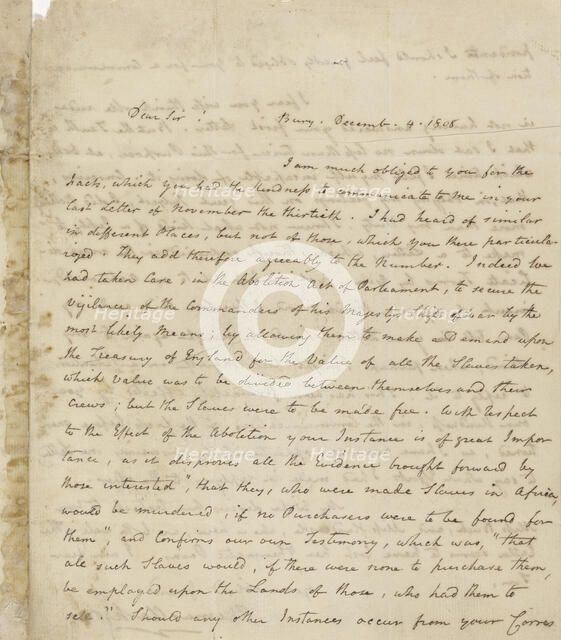 Dear Sir! Bury. Decemb. 4. 1808
I am much obliged to you for the
Facts, which you had the kindness to communicate to me in your
last Letter of November the thirtieth. I had heard of similar
in different Places, but not of those, which you there particula-
rized. They add therefore agreeably to the Number. Indeed we
had taken Care, in the Abolition Act of Parliament, to secure the
Vigilance of the Commanders of his Majesty's Ships of war by the
most likely Means, by allowing them to make a Demand upon
the Treasury of England for the Value of all the Slaves taken,
which Value was to be divided between themselves and their
Crews; but the Slaves were to be made free. With respect
to the Effect of the Abolition your Instance is of great Impor-
tance, as it disproves all the Evidence brought forward by
those interested", that they, who were made Slaves in Africa,
would be murdered, if no Purchasers were to be found for
them", and confirms our own Testimony, which was, "that
all such Slaves would, if there were none to purchase them,
be employed upon the Lands of those, who had them to
sell." Should any other Instances occur from your Corres
Heritage
Heritage
Heritage
Heritage
Heritage
Heritage
Heritage